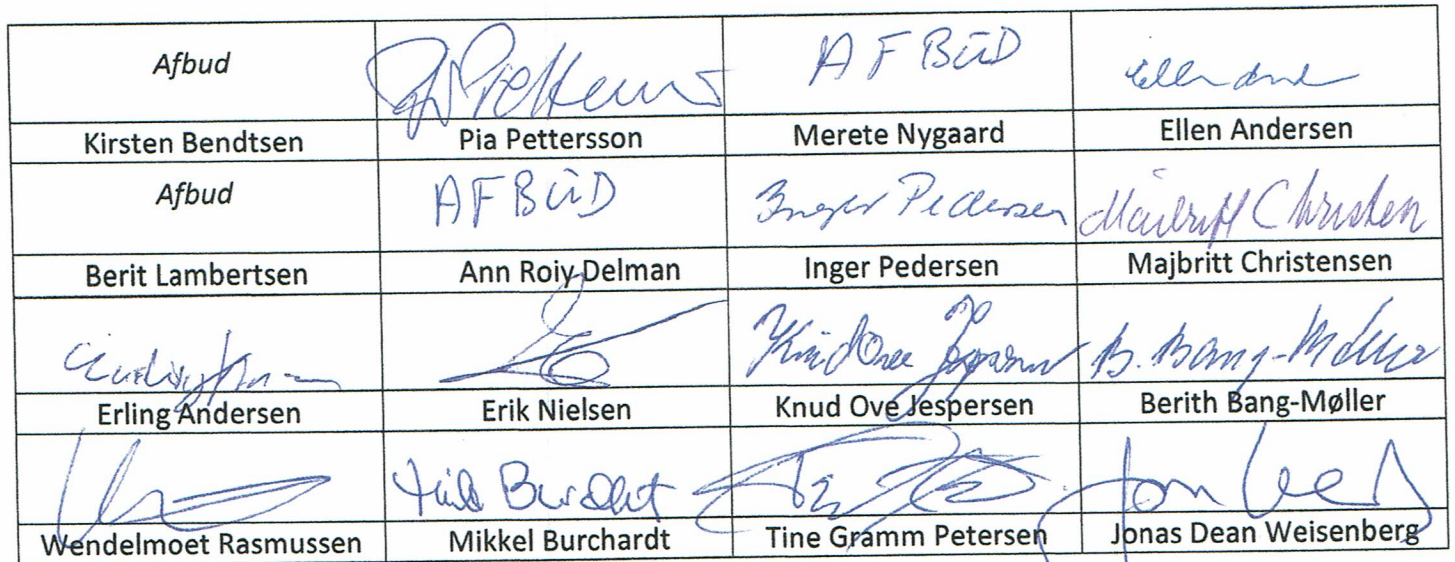 Afbud AFBUD
Kirsten Bendtsen Pia Pettersson Merete Nygaard Ellen Andersen
Afbud AFBUD Inger Pedersen Majbritt Christen
Berit Lambertsen Ann Roiy Delman Inger Pedersen Majbritt Christensen
B. Bang-Møller
Erling Andersen Erik Nielsen Knud Ove Jespersen Berith Bang-Møller
Burchardt
Wendelmoet Rasmussen Mikkel Burchardt Tine Gramm Petersen Jonas Dean Weisenberg